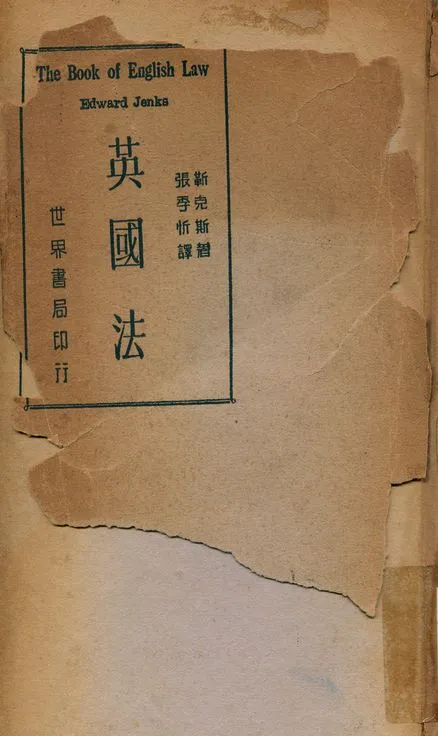 The Book of English Law
Edward Jenks
靳克斯著
張季忻譯
英國法
世界書局印行